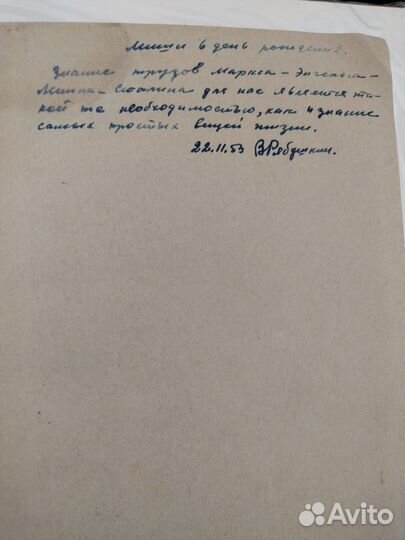 Миши в день рождения.
Знание трудов Маркса – Энгельса –
Ленина – Сталина для нас является та-
кой же необходимостью, как и знание
самых простых вещей жизни.
22.11.53 ВРябушкин.
Avito